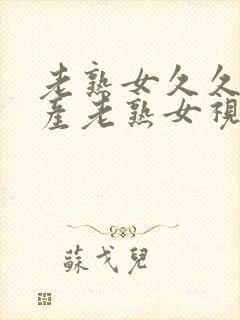 老熟女久久
產老熟女視
蘇戈兒